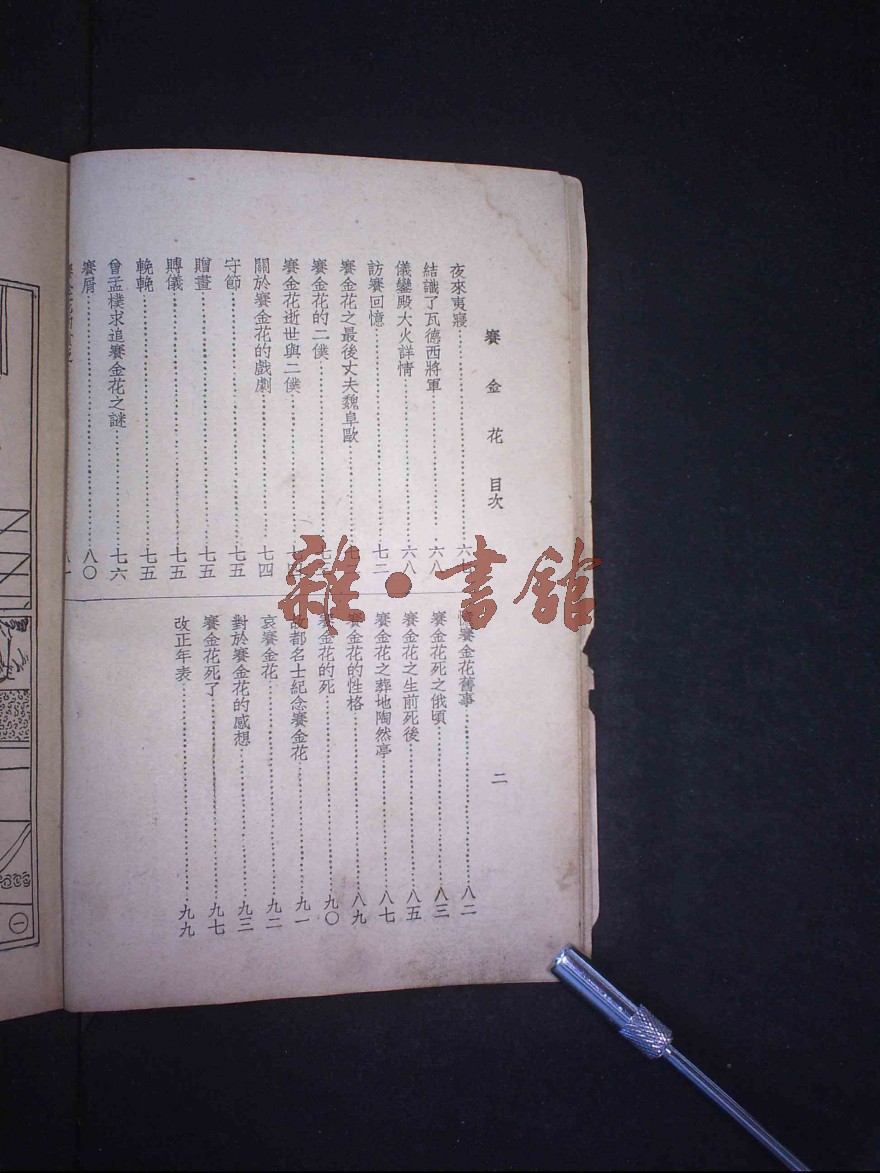 賽金花 目次
二
夜來夷寢
結識了瓦德西將軍 六八
儀鑾殿大火詳情 六八
訪賽回憶 七二
賽金花之最後丈夫魏阜歐
賽金花的二僕
賽金花逝世與二僕
關於賽金花的戲劇 七四
守節 七五
贈畫 七五
賻儀 七五
輓輓 七五
曾孟樸求追賽金花之謎 七六
賽屑 八〇
賽金花舊事 八二
賽金花死之俄頃 八三
賽金花之生前死後 八五
賽金花之葬地陶然亭 八七
賽金花的性格 八九
賽金花的死 九〇
故都名士紀念賽金花 九一
哀賽金花 九二
對於賽金花的感想 九三
賽金花死了 九七
改正年表 九九
雜·書館
一